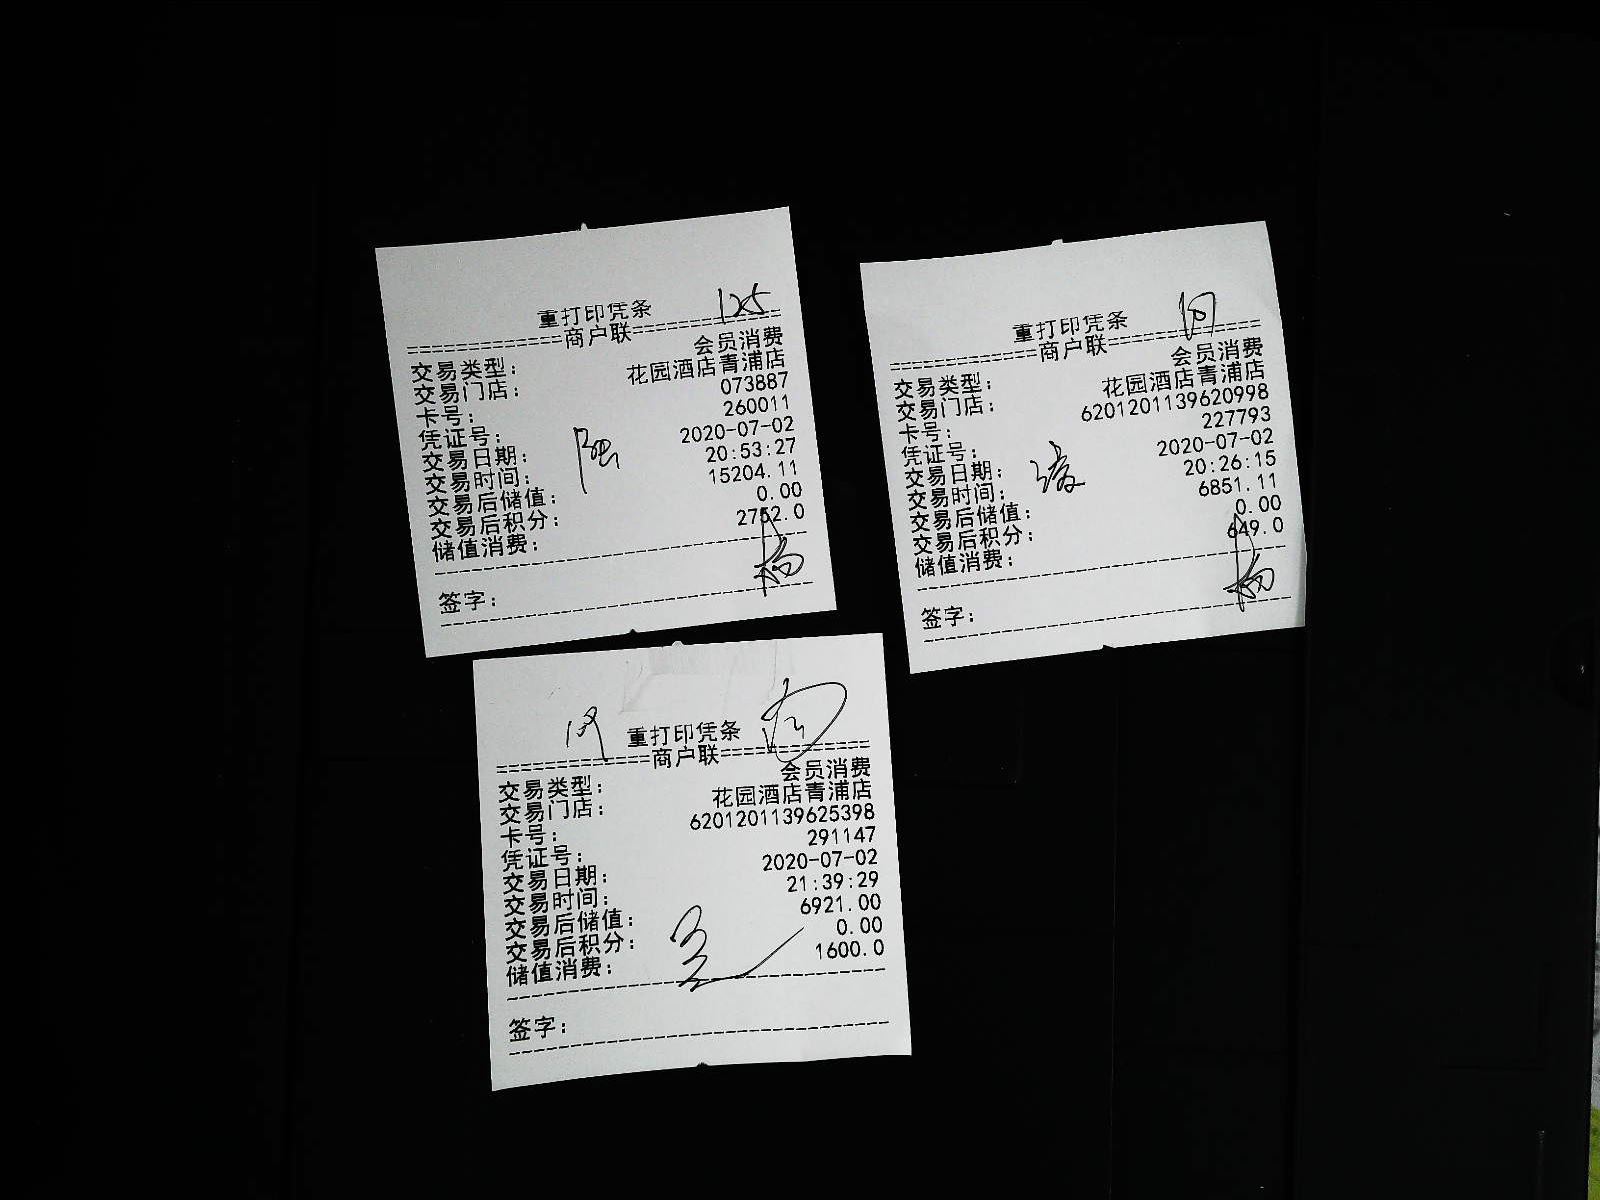 125
重打印凭条
==========商户联==========
交易类型: 会员消费
交易门店: 花园酒店青浦店
卡号: 073887
凭证号: 260011
交易日期: 2020-07-02
交易时间: 20:53:27
交易后储值: 15204.11
交易后积分: 0.00
储值消费: 2752.0
签字:
重打印凭条
==========商户联==========
交易类型: 会员消费
交易门店: 花园酒店青浦店
卡号: 6201201139620998
凭证号: 227793
交易日期: 2020-07-02
交易时间: 20:26:15
交易后储值: 6851.11
交易后积分: 0.00
储值消费: 649.0
签字:
重打印凭条
==========商户联==========
交易类型: 会员消费
交易门店: 花园酒店青浦店
卡号: 6201201139625398
凭证号: 291147
交易日期: 2020-07-02
交易时间: 21:39:29
交易后储值: 6921.00
交易后积分: 0.00
储值消费: 1600.0
签字: